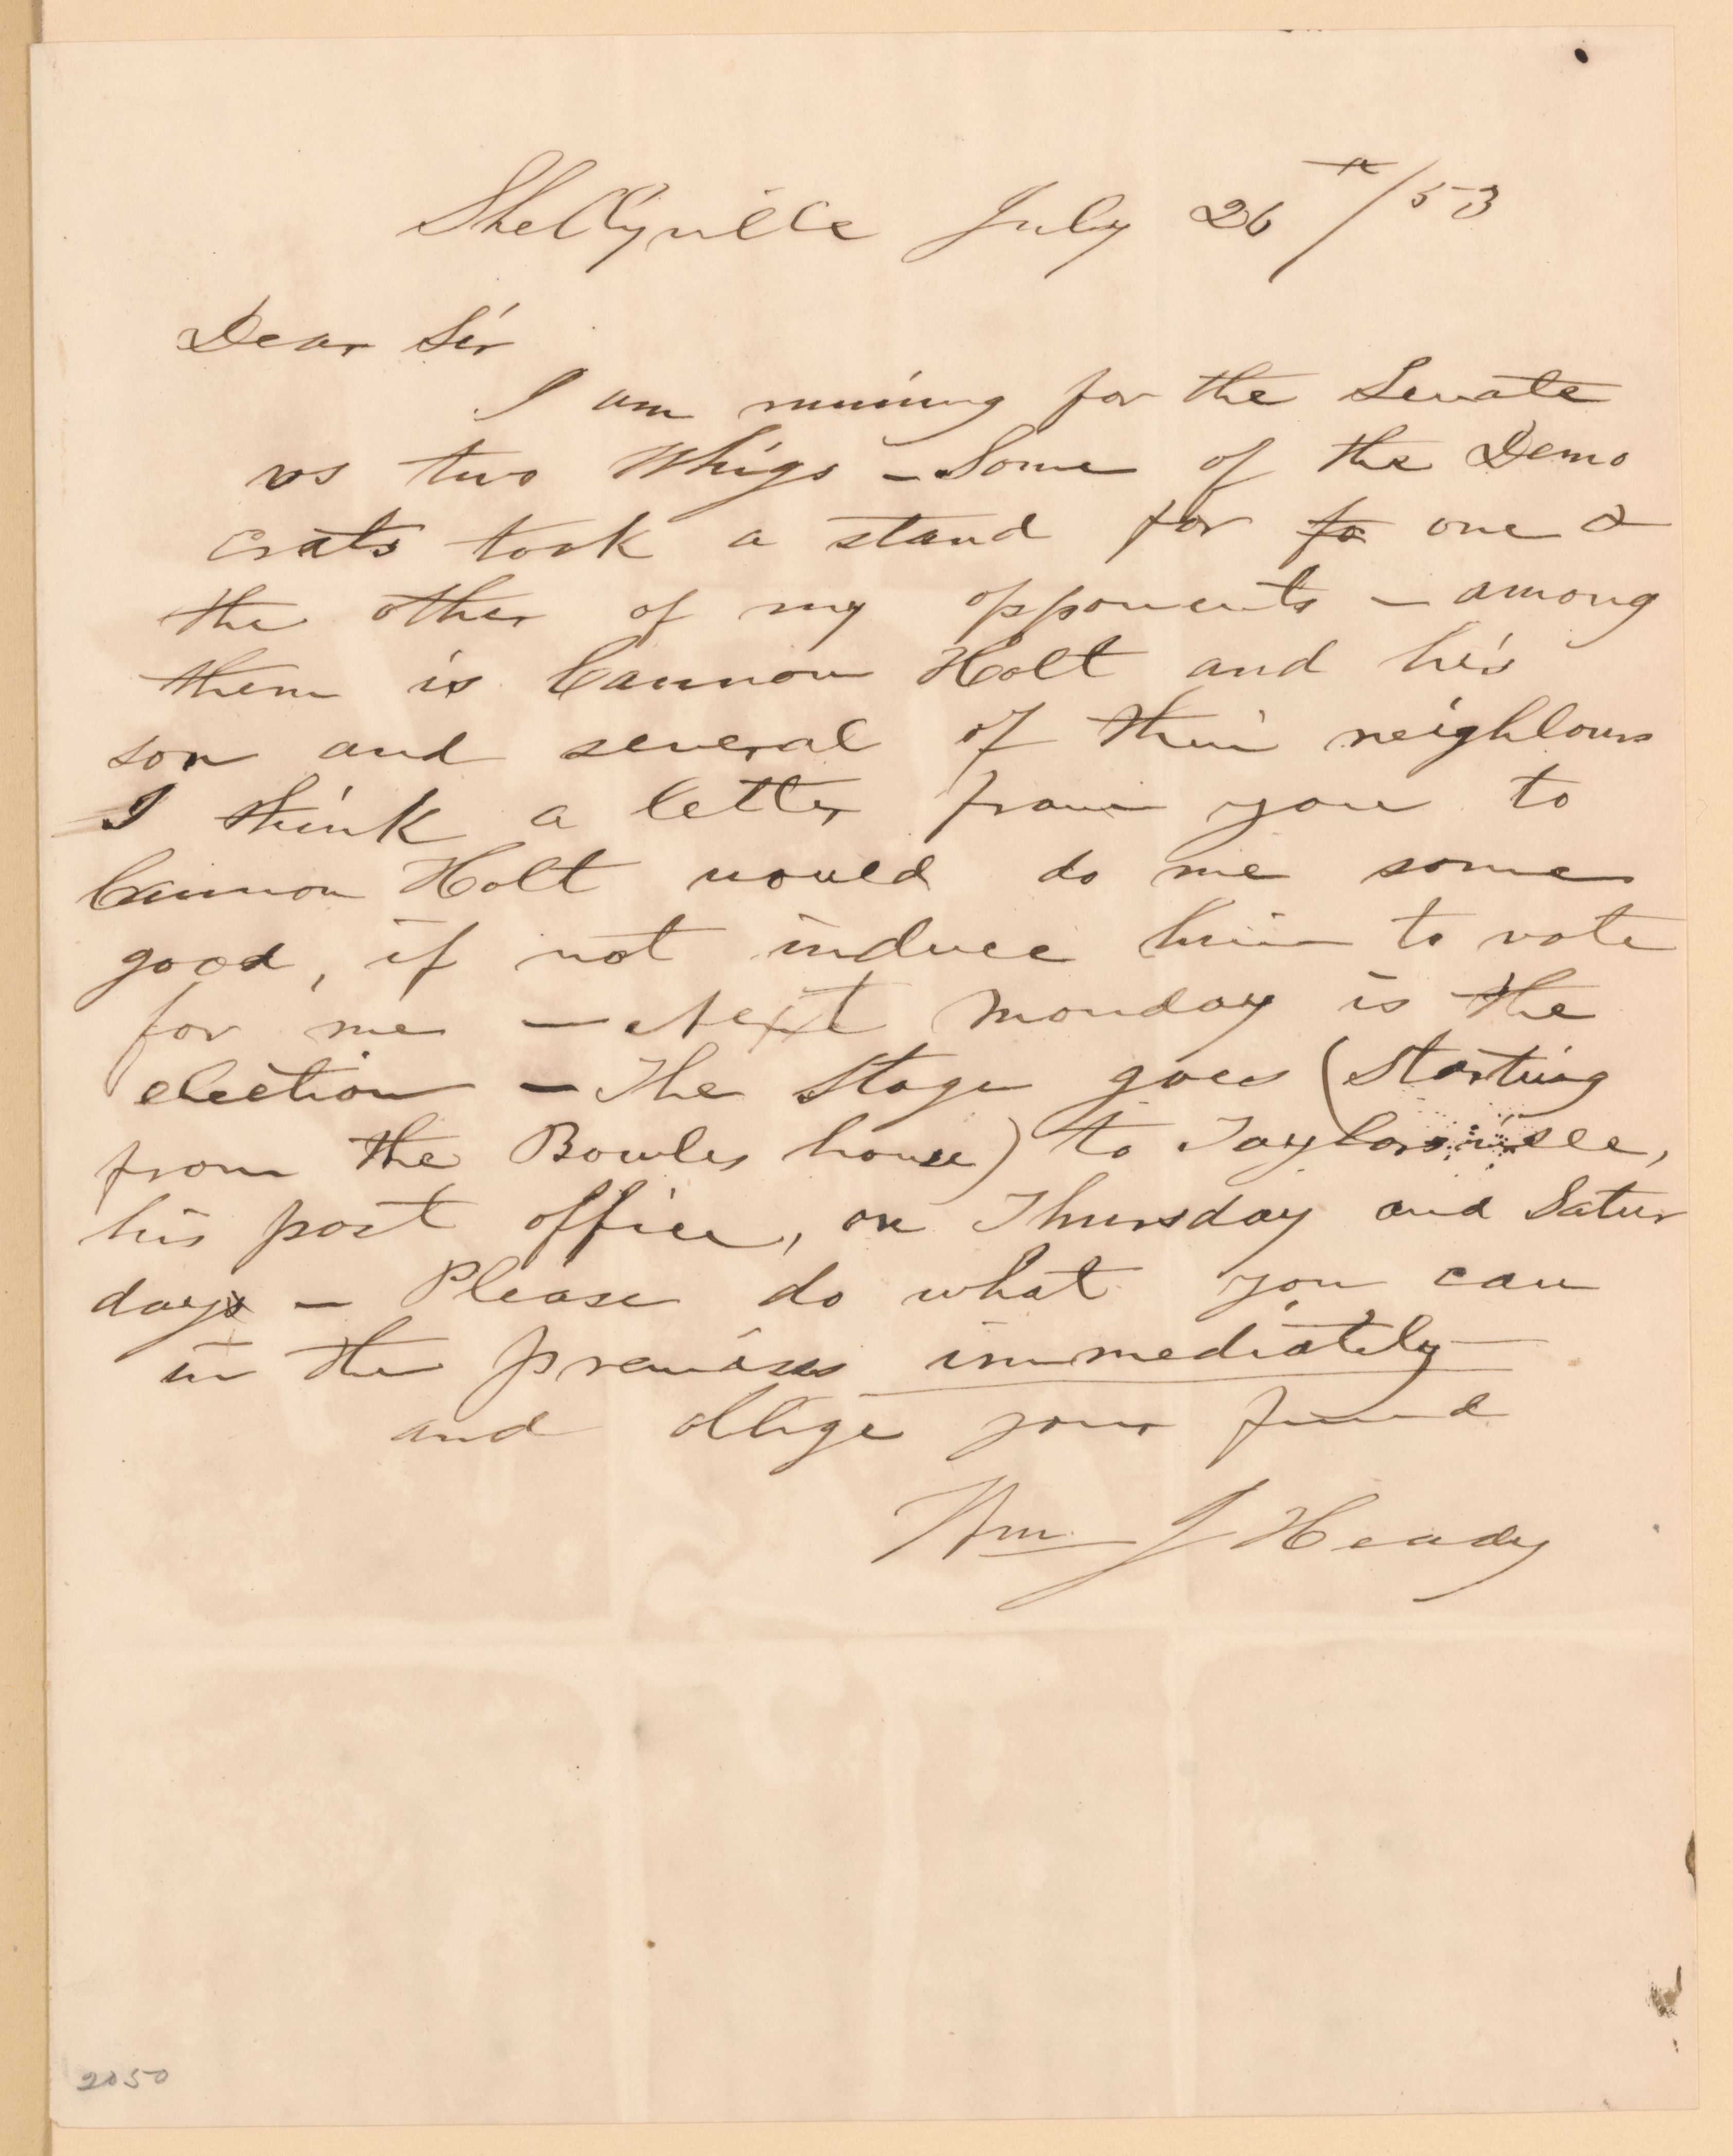 Shelbyville July 26th/53
Dear Sir
I am running for the Senate
vs two Whigs – Some of the Demo
crats took a stand for fo one &
the other of my opponents – among
them is Cannon Holt and his
son and several of their neighbours
I think a letter from you to
Cannon Holt would do me some
good, if not induce him to vote
for me – Next Monday is the
election – The Stage goes (starting
from the Bowles house) to Taylorsville,
his post office, on Thursday and Satur
days – Please do what you can
in the premises immediately
and oblige your friend
Wm J Heady
2050